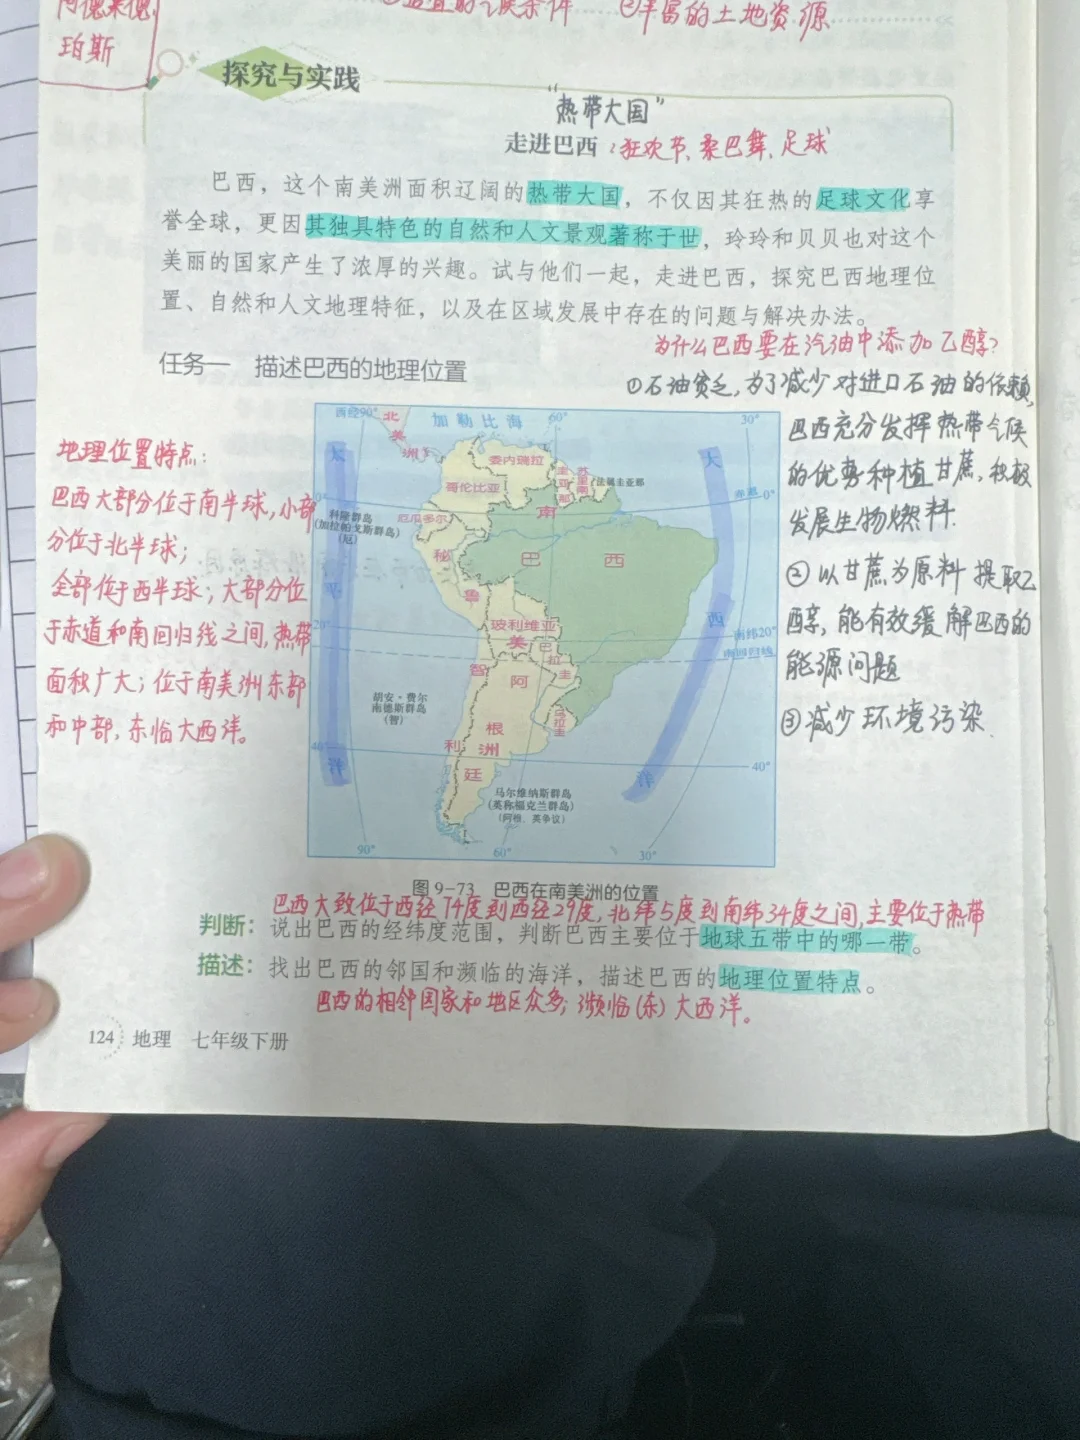 阿德莱德,
珀斯
②丰富的土地资源
探究与实践
“热带大国”
走进巴西：狂欢节、桑巴舞、足球
巴西，这个南美洲面积辽阔的热带大国，不仅因其狂热的足球文化享
誉全球，更因其独具特色的自然和人文景观著称于世，玲玲和贝贝也对这个
美丽的国家产生了浓厚的兴趣。试与他们一起，走进巴西，探究巴西地理位
置、自然和人文地理特征，以及在区域发展中存在的问题与解决办法。
为什么巴西要在汽油中添加乙醇？
任务一 描述巴西的地理位置
①石油贫乏，为了减少对进口石油的依赖，
巴西充分发挥热带气候
的优势种植甘蔗，积极
发展生物燃料.
②以甘蔗为原料提取乙
醇，能有效缓解巴西的
能源问题
③减少环境污染.
地理位置特点：
巴西大部分位于南半球，小部
分位于北半球；
全部位于西半球；大部分位
于赤道和南回归线之间，热带
面积广大；位于南美洲东部
和中部，东临大西洋。
西经90°
北美洲
加勒比海
60°
30°
太平洋
大西洋
委内瑞拉
圭亚那
苏里南
法属圭亚那
哥伦比亚
赤道
0°
0°
科隆群岛
(加拉帕戈斯群岛)
(厄)
厄瓜多尔
南美洲
秘鲁
巴西
玻利维亚
20°
南纬20°
南回归线
巴拉圭
智利
阿根廷
乌拉圭
胡安·费尔
南德斯群岛
(智)
40°
40°
马尔维纳斯群岛
(英称福克兰群岛)
(阿根、英争议)
90°
60°
30°
图9-73 巴西在南美洲的位置
巴西大致位于西经74度到西经29度，北纬5度到南纬34度之间，主要位于热带
判断：说出巴西的经纬度范围，判断巴西主要位于地球五带中的哪一带。
描述：找出巴西的邻国和濒临的海洋，描述巴西的地理位置特点。
巴西的相邻国家和地区众多；濒临(东)大西洋。
124 地理 七年级下册